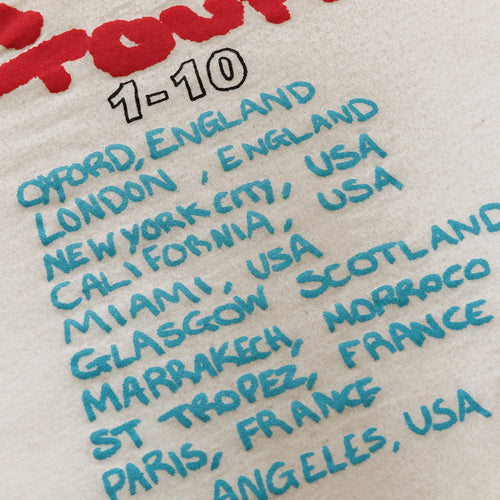 TOUR
1-10
OXFORD, ENGLAND
LONDON , ENGLAND
NEW YORK CITY, USA
CALIFORNIA, USA
MIAMI, USA
GLASGOW SCOTLAND
MARRAKECH, MORROCO
ST TROPEZ, FRANCE
PARIS, FRANCE
ANGELES, USA